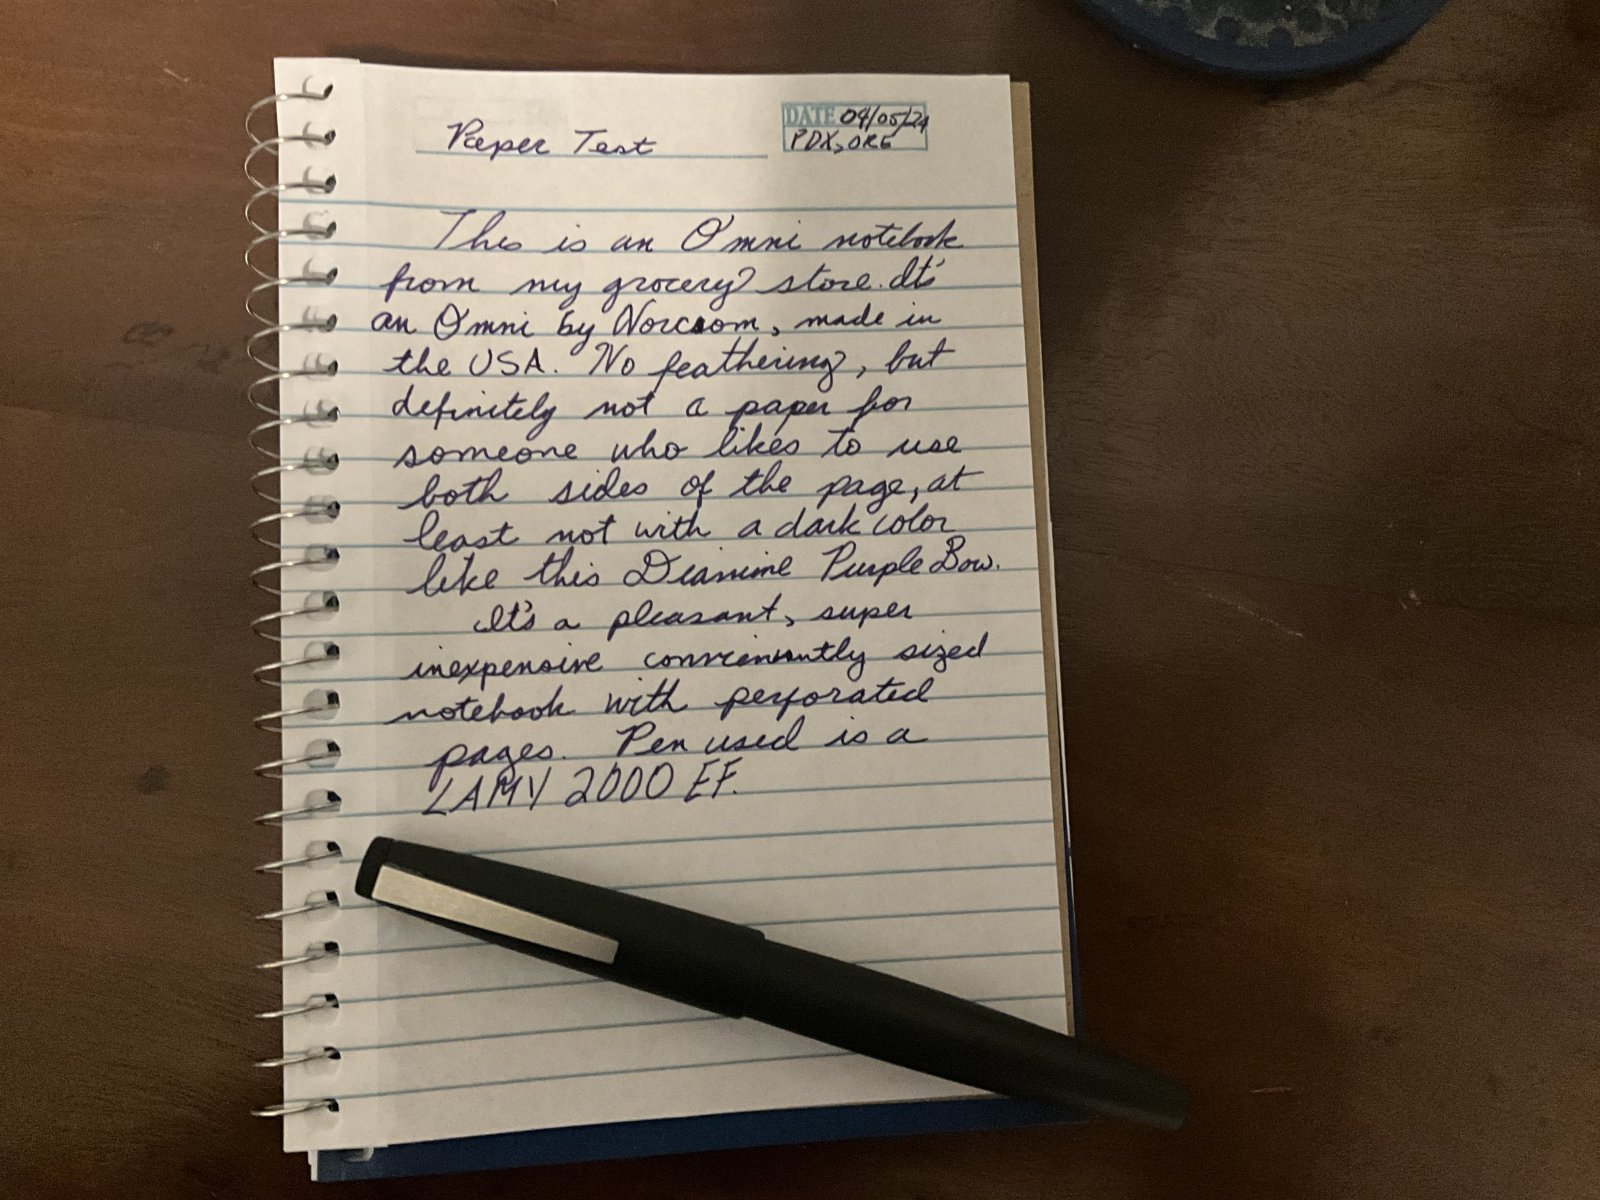 Paper Test
DATE 09/05/24
PDX, ORE
This is an Omni notebook
from my grocery store. It's
an Omni by Norcom, made in
the USA. No feathering, but
definitely not a paper for
someone who likes to use
both sides of the page, at
least not with a dark color
like this Diamine Purple Bow.
It's a pleasant, super
inexpensive conveniently sized
notebook with perforated
pages. Pen used is a
LAMY 2000 EF.